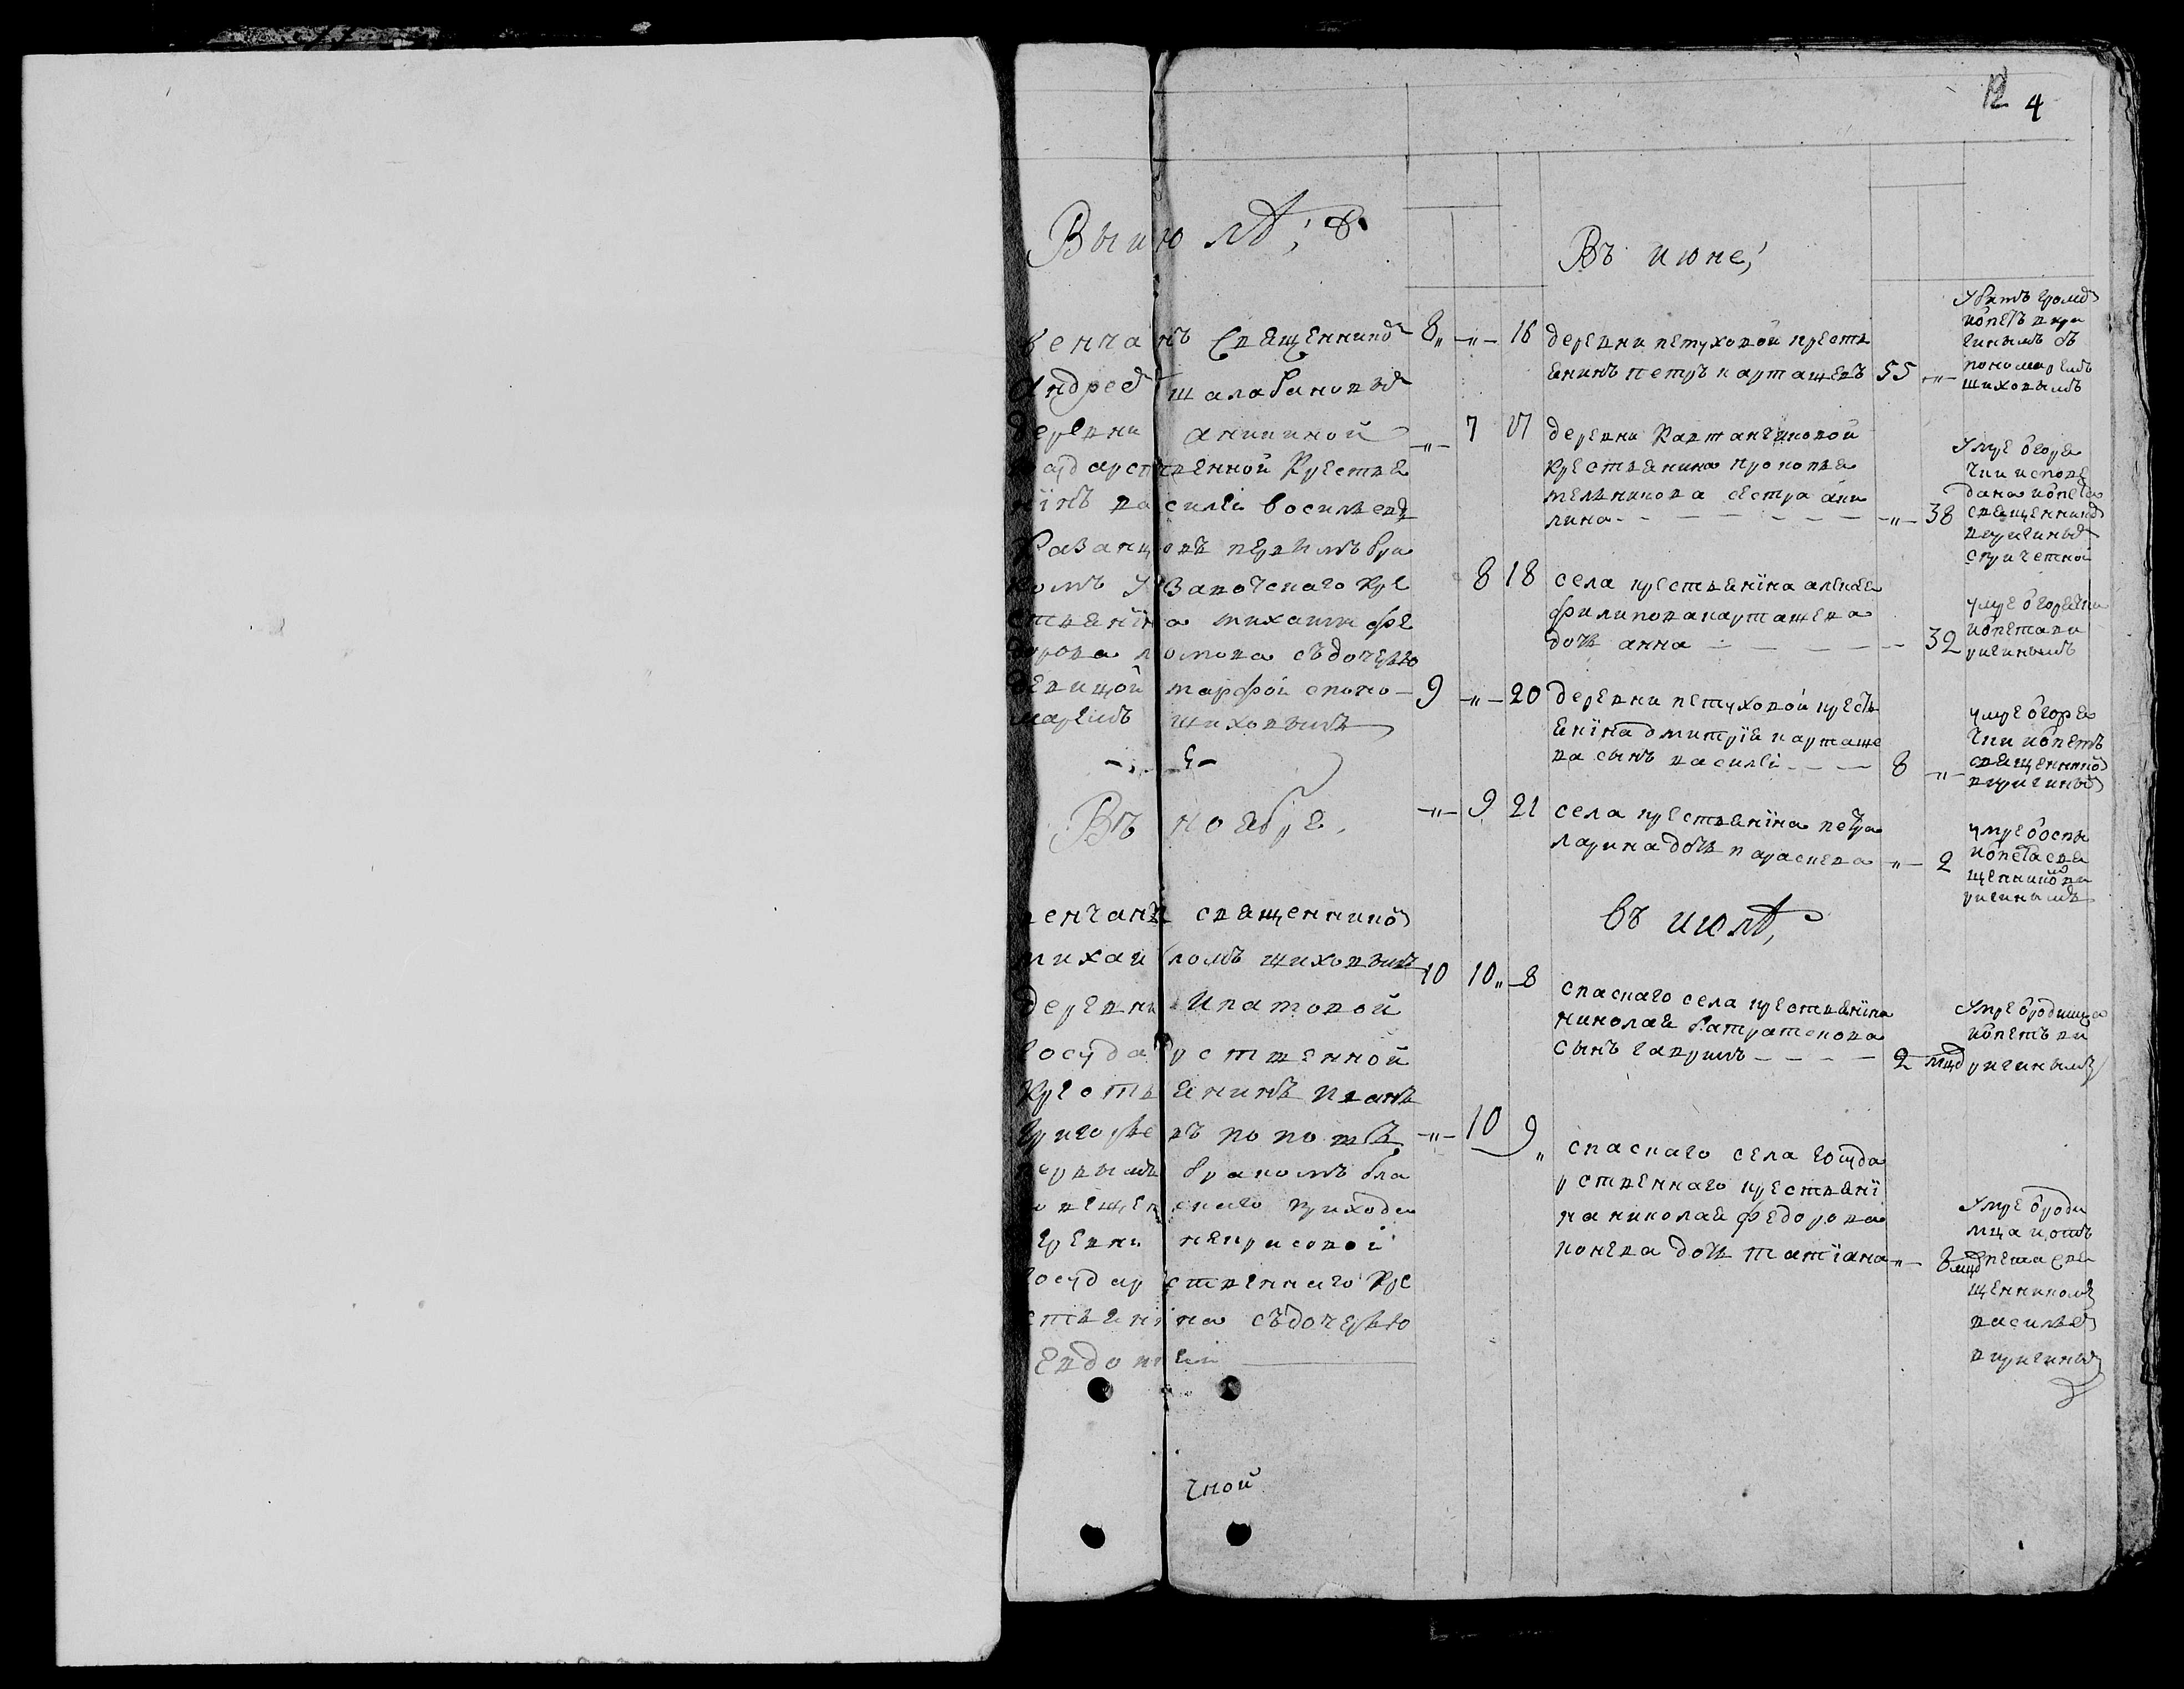 12 4
Въ июлѣ,
венчанъ священникомъ
Андреемъ шалабановымъ
деревни аникиной
государственной крестья
нїнъ василеи василиевъ
Казанцовъ первымъ бра
комъ
стьянина михаила фе
дорова ломова съдочерью
девицой марфой споно
маремъ шиховымъ
Въ ноября
венчанъ священникомъ
михаиломъ шиховымъ
деревни Ипатовой
государственной
крестьянинъ иванъ
Григорьевъ поповъ
первымъ бракомъ бла
говещенскаго прихода
деревни
государственнаго кре
стьянїна съдочерью
Евдокиеи
чной
Въ июне,
8 -„- 16 деревни петуховой кресть
янинъ петръ карташевъ 55 -„-
Убитъ громомъ
иопетъ вери
гинымъ съ
пономаремъ
шиховымъ
-„- 7 17 деревни
крестьянина прокопья
мельникова сестра аки
лина -„- 38
Умре огоря
чки испове
дана иопета
священникомъ
веригинымъ
спричетной
8 18 села крестьянїна алексея
филиповакарташева
дочь анна 32
умре огорячки
иопетаве
ригинымъ
9 -„- 20 деревни петуховой кресть
янїна дмитрїя карташе
ва сынъ василеі 8 -„-
умре огоря
чки иопетъ
священникомъ
веригинымъ
-„- 9 21 села крестьянїна петра
ларина дочь параскева -„- 2
умре ооспы
иопета свя
щенникомъ ве
ригинымъ
въ июлѣ,
10 10 8 спаскаго села крестьянїна
николая
сынъ гаврилъ 2 мцд
Умре ородимца
иопетъ ве
ригинымъ
-„- 10 9 спаскаго села госуда
рственнаго крестьянї
на николая федорова
конева дочь татїана -„- 8 мцд
Умре ороди
мца и отъ
пета свя
щенникомъ
василиемъ
веригинымъ